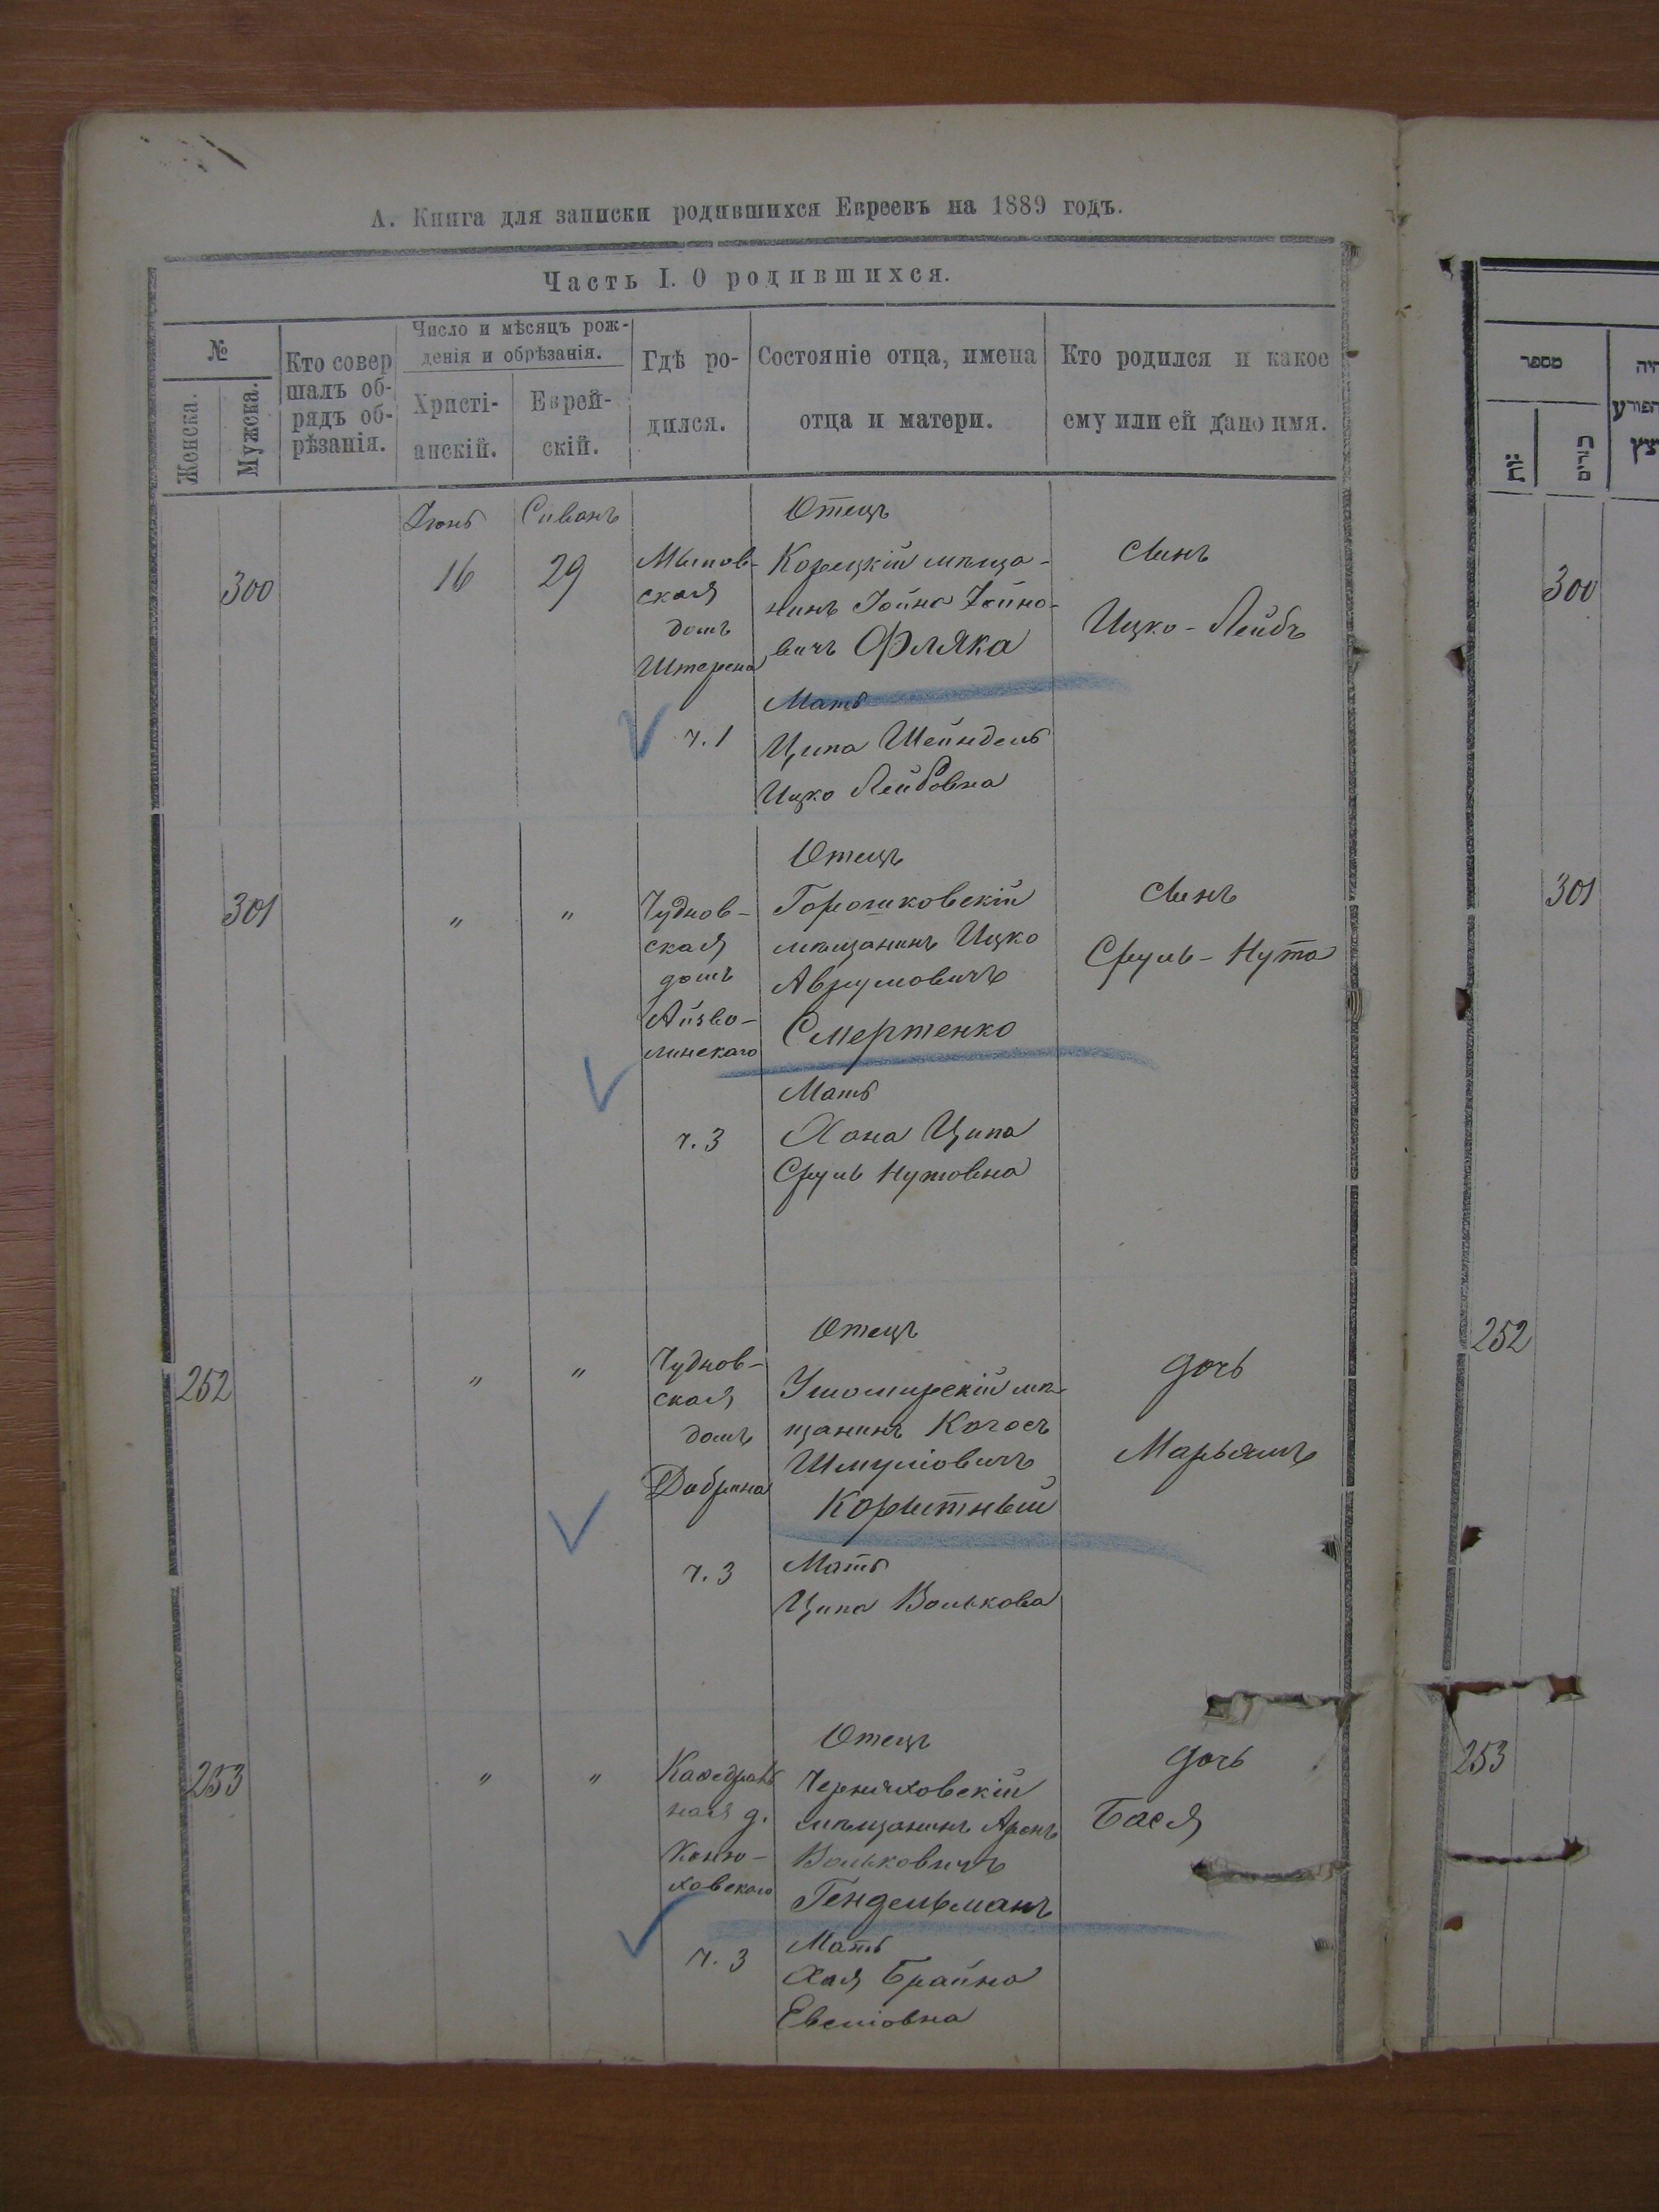 А. Книга для записки родившихся Евреевъ на 1889 годъ.
Часть I. О родившихся.
№
Женска.
Мужска.
Кто совер
шалъ об-
рядъ об-
рѣзанія.
Число и мѣсяцъ рож-
денія и обрѣзанія.
Христі-
анскій.
Еврей-
скій.
Гдѣ ро-
дился.
Состояніе отца, имена
отца и матери.
Кто родился и какое
ему или ей дано имя.
Іюнь
Сиванъ
300
16
29
домъ
Штерена
ч. 1
Отецъ
Корецкій мѣща-
нинъ Іойна
вичъ Фляка
Мать
Ципа Шейндель
Ицко Лейбовна
Сынъ
Ицко-Лейбъ
301
"
"
Чуднов-
ская
домъ
ч. 3
Отецъ
Горошковскій
мѣщанинъ Ицко
Аврумовичъ
Смертенко
Мать
Хана Ципа
Сруль Нутовна
Сынъ
Сруль-Нута
252
"
"
Чуднов-
ская
домъ
Добрина
ч. 3
Отецъ
Ушомирскій мѣ-
щанинъ
Шмулiовичъ
Коритный
Мать
Ципа Волькова
дочь
Марьямъ
253
"
"
Каѳедраль
ная д.
Коню-
ховскаго
ч. 3
Отецъ
Черняховскій
мѣщанинъ Аронъ
Вольковичъ
Гендельманъ
Мать
Хая Брайна
Евеліовна
дочь
Бася
מספר
300
301
252
253